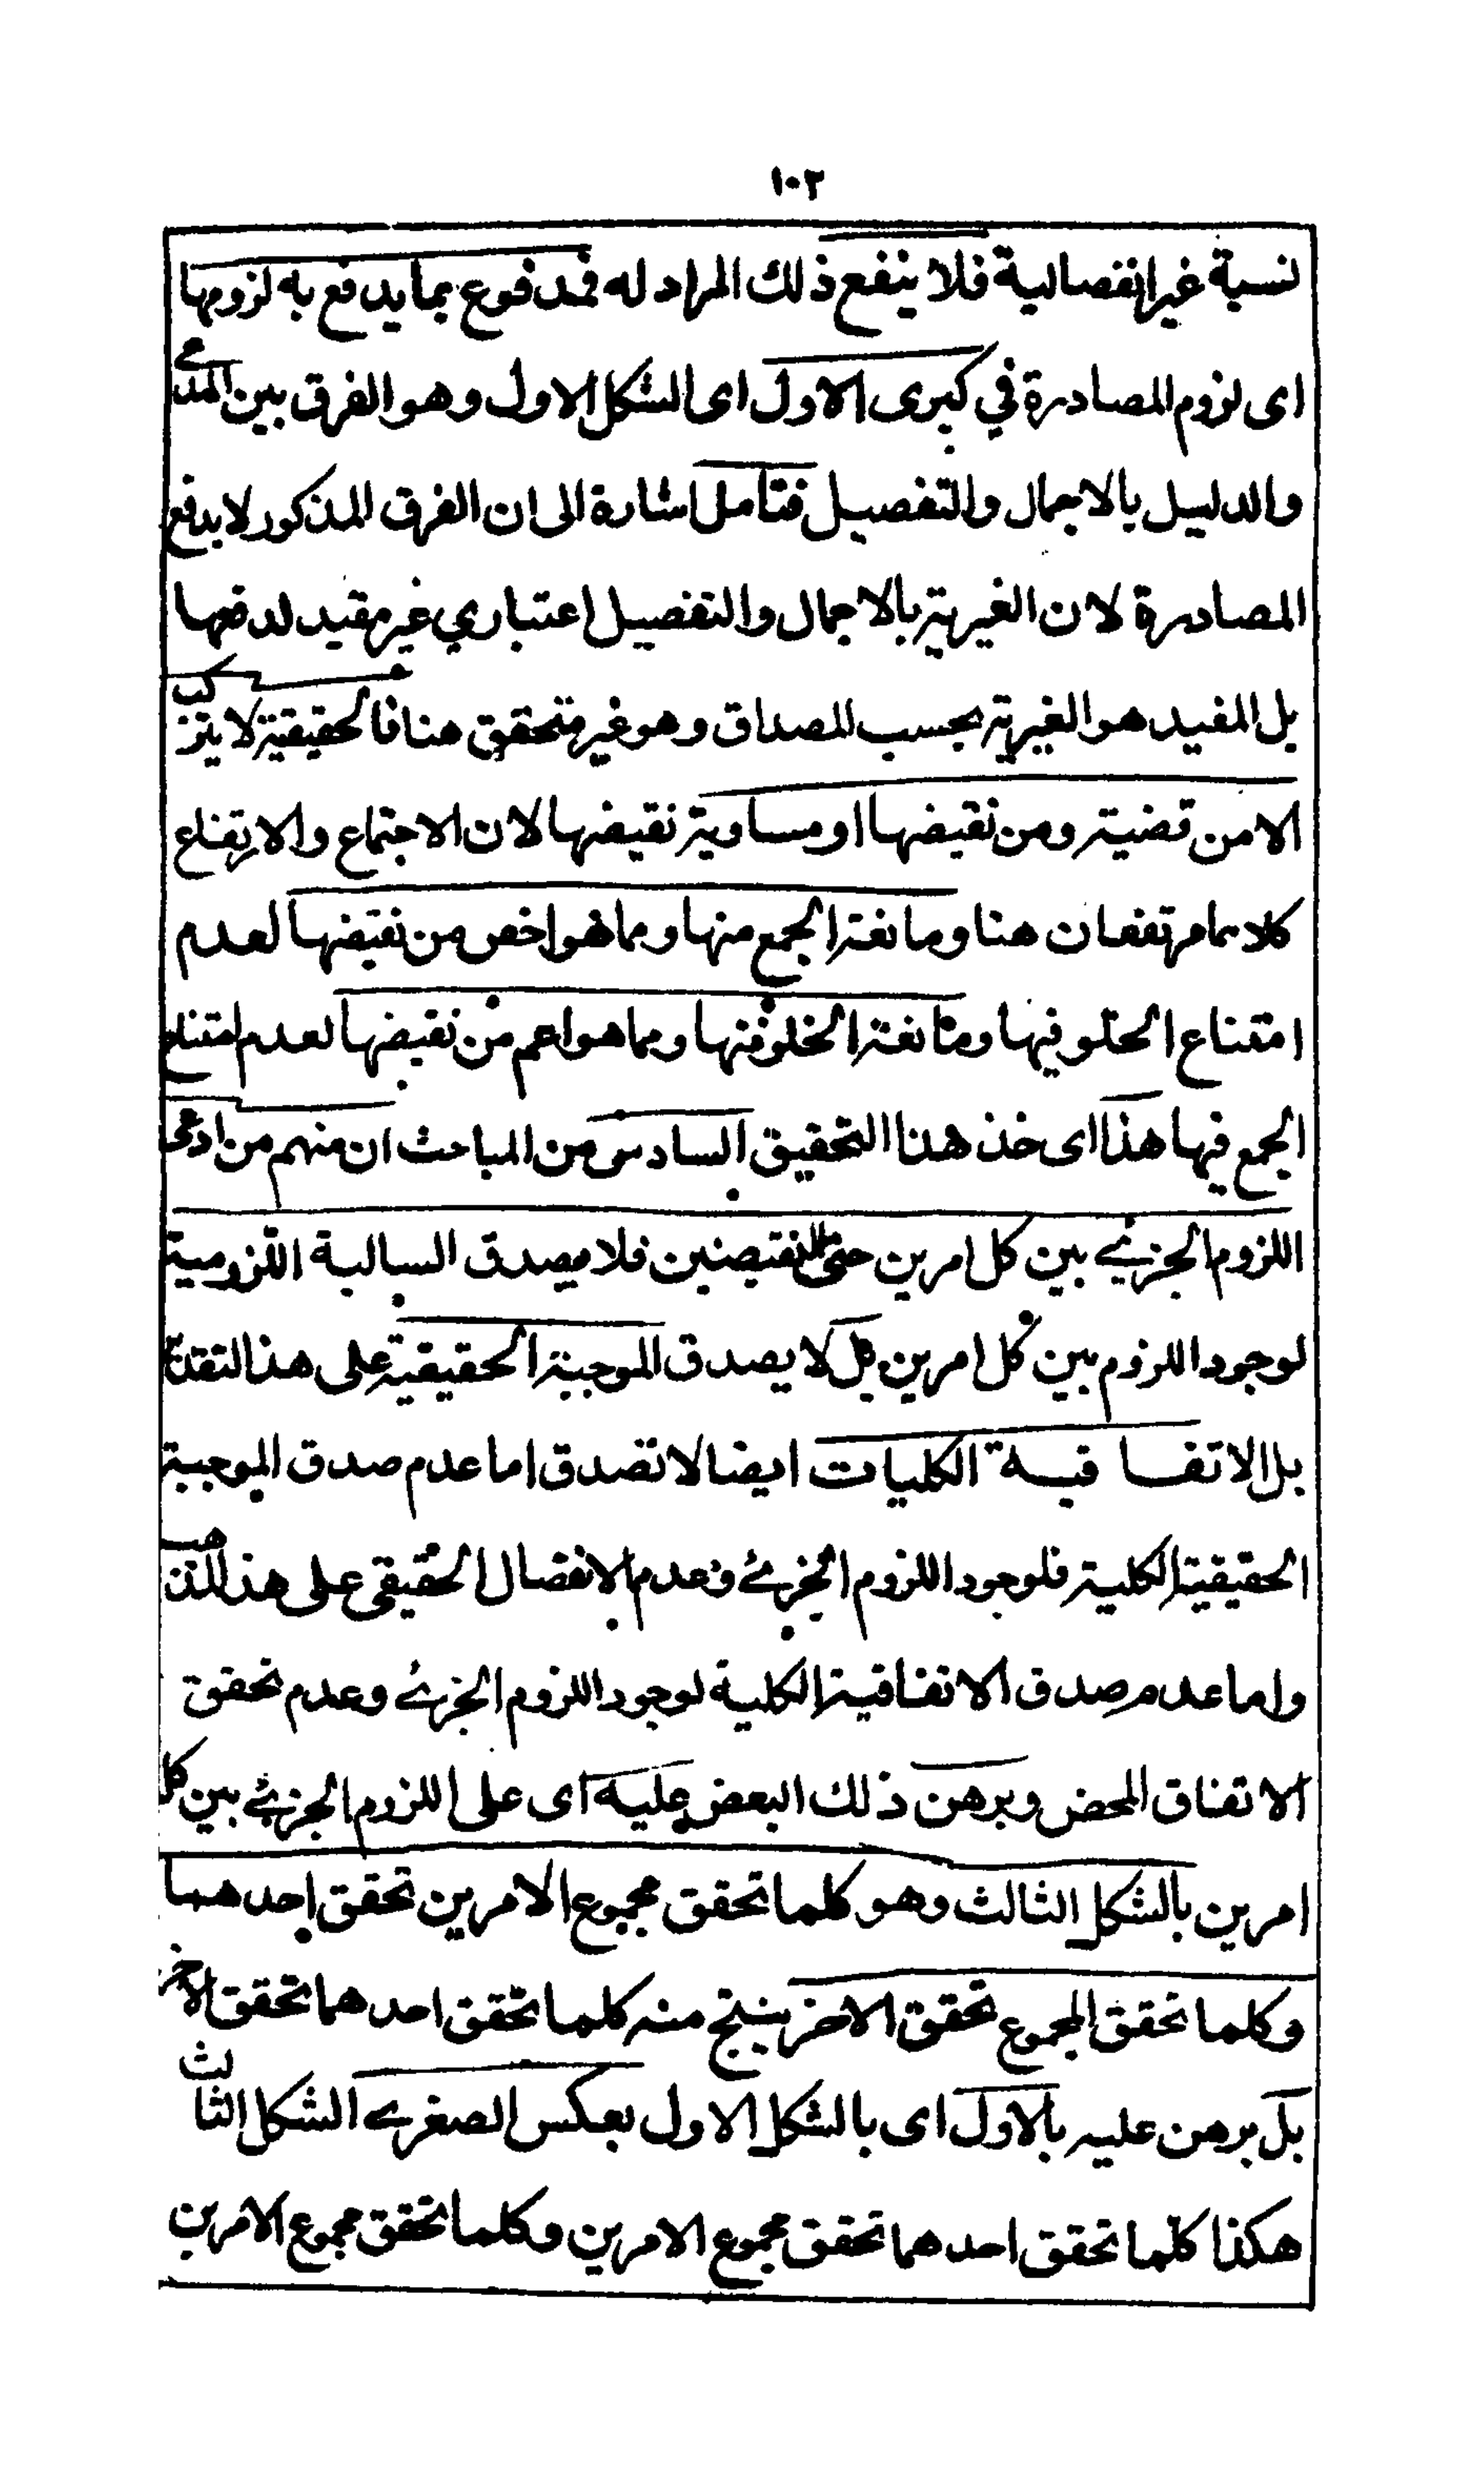 ١٠٢
نسبة غير انفصالية فلا ينفع ذلك المراد له فمدفوع بما يدفع به لزومها
اى لزوم المصادرة في كبرى الاول اى الشكل الاول وهو الفرق بين المدعى
والدليل بالاجمال والتفصيل فتأمل اشارة الى ان الفرق المذكور لا يدفع
المصادرة لان الغيرية بالاجمال والتفصيل اعتباري غير مفيد لدفعها
بل المفيد هو الغيرية بحسب المصداق وهو غير متحقق هنا فالحقيقية لا يتركب
الا من قضية ومن نقيضها او مساوية نقيضها لان الاجتماع والارتفاع
كلاهما مرتفعان هنا ومانعة الجمع منها ومما هو اخص من نقيضها لعدم
امتناع الخلو فيها ومانعة الخلو منها ومما هو اعم من نقيضها لعدم امتناع
الجمع فيها هذا اى خذ هذا التحقيق السادس من المباحث ان منهم من ادعى
اللزوم الجزئي بين كل امرين حتى النقيضين فلا يصدق السالبة اللزومية
لوجود اللزوم بين كل امرين بل لا يصدق الموجبة الحقيقية على هذا التقدير
بل الاتفا قية الكليات ايضا لا تصدق اما عدم صدق الموجبة
الحقيقية الكلية فلوجود اللزوم الجزئي وعدم الانفصال الحقيقي على هذا
واما عدم صدق الاتفاقية الكلية لوجود اللزوم الجزئي وعدم تحقق
الاتفاق المحض وبرهن ذلك البعض عليه اى على اللزوم الجزئي بين كل
امرين بالشكل الثالث وهو كلما تحقق مجموع الامرين تحقق احدهما
وكلما تحقق المجموع تحقق الاخر ينتج منه كلما تحقق احدهما تحقق الاخر
بل برهن عليه بالاول اى بالشكل الاول بعكس الصغرى الشكل الثالث
هكذا كلما تحقق احدهما تحقق مجموع الامرين وكلما تحقق مجموع الامرين